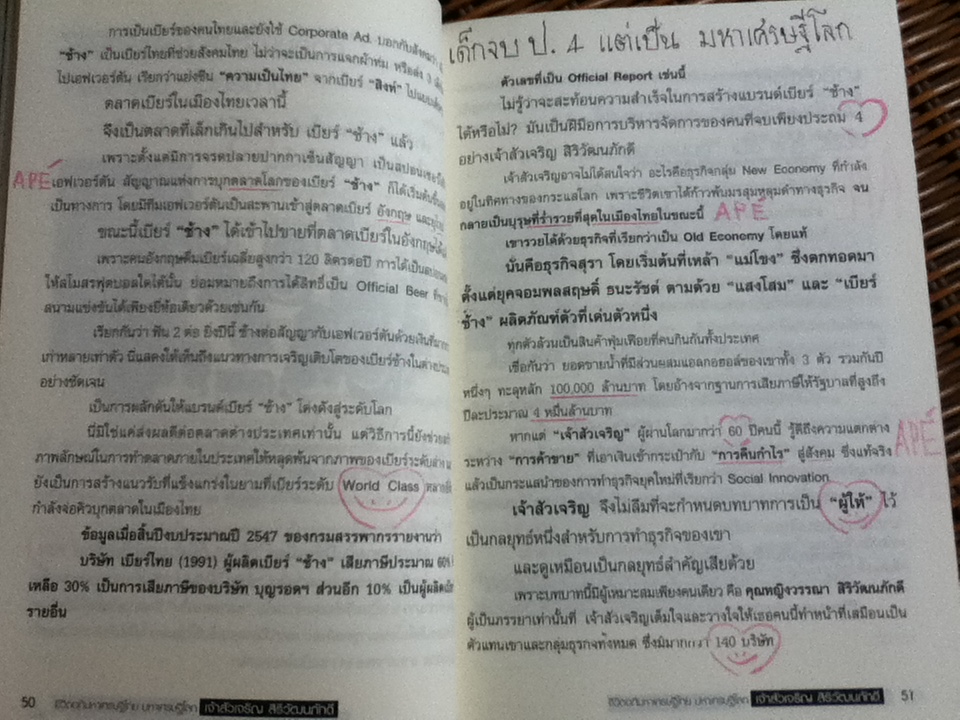 การเป็นเบียร์ของคนไทยและยังใช้ Corporate Ad. บอกกับสังคมว่า
"ช้าง" เป็นเบียร์ไทยที่ช่วยสังคมไทย ไม่ว่าจะเป็นการแจกผ้าห่ม หรือส่ง 3
ไปเอฟเวอร์ตัน เรียกว่าแย่งชิน "ความเป็นไทย" จากเบียร์ "สิงห์"
ตลาดเบียร์ในเมืองไทยเวลานี้
จึงเป็นตลาดที่เล็กเกินไปสำหรับ เบียร์ "ช้าง" แล้ว
เพราะตั้งแต่มีการจรดปลายปากกาเซ็นสัญญา เป็นสปอนเซอร์ให้
APÉ เอฟเวอร์ตัน สัญญาณแห่งการบุกตลาดโลกของเบียร์ "ช้าง" ก็ได้เริ่มขึ้น
เป็นทางการ โดยมีทีมเอฟเวอร์ตันเป็นสะพานเข้าสู่ตลาดเบียร์ อังกฤษ
ขณะนี้เบียร์ "ช้าง" ได้เข้าไปขายที่ตลาดเบียร์ในอังกฤษ
เพราะคนอังกฤษดื่มเบียร์เฉลี่ยสูงกว่า 120 ลิตรต่อปี การได้เป็น
ให้สโมสรฟุตบอลใดได้นั้น ย่อมหมายถึงการได้สิทธิ์เป็น Official Beer
สนามแข่งขันได้เพียงยี่ห้อเดียวด้วยเช่นกัน
เรียกกันว่า ฟัน 2 ต่อ ยิ่งปีนี้ ช้างต่อสัญญากับเอฟเวอร์ตันด้วยเงินที่มาก
เก่าหลายเท่าตัว นี่แสดงให้เห็นถึงแนวทางการเจริญเติบโตของเบียร์ช้างใน
อย่างชัดเจน
เป็นการผลักดันให้แบรนด์เบียร์ "ช้าง" โด่งดังสู่ระดับโลก
นี่มิใช่แค่ส่งผลดีต่อตลาดต่างประเทศเท่านั้น แต่วิธีการนี้ยังช่วย
ภาพลักษณ์ในการทำตลาดภายในประเทศให้หลุดพ้นจากภาพของเบียร์ระดับล่าง
ยังเป็นการสร้างแนวรับที่แข็งแกร่งในยามที่เบียร์ระดับ World Class
กำลังจ่อคิวบุกตลาดในเมืองไทย
ข้อมูลเมื่อสิ้นปีงบประมาณปี 2547 ของกรมสรรพากรรายงานว่า
บริษัท เบียร์ไทย (1991) ผู้ผลิตเบียร์ "ช้าง" เสียภาษีประมาณ 60%
เหลือ 30% เป็นการเสียภาษีของบริษัท บุญรอดฯ ส่วนอีก 10% เป็นผู้ผลิต
รายอื่น
50 ชีวิตดุจมหาเศรษฐีไทย มหาเศรษฐีโลก เจ้าสัวเจริญ สิริวัฒนภักดี
เด็กจบ ป. 4 แต่เป็น มหาเศรษฐีโลก
ตัวเลขที่เป็น Official Report เช่นนี้
ไม่รู้ว่าจะสะท้อนความสำเร็จในการสร้างแบรนด์เบียร์ "ช้าง"
ได้หรือไม่? มันเป็นฝีมือการบริหารจัดการของคนที่จบเพียงประถม 4
อย่างเจ้าสัวเจริญ สิริวัฒนภักดี
เจ้าสัวเจริญอาจไม่ได้สนใจว่า อะไรคือธุรกิจกลุ่ม New Economy ที่กำลัง
อยู่ในทิศทางของกระแสโลก เพราะชีวิตเขาได้ก้าวพ้นมรสุมหลุมดำทางธุรกิจ จน
กลายเป็นบุรุษที่ร่ำรวยที่สุดในเมืองไทยในขณะนี้ APÉ
เขารวยได้ด้วยธุรกิจที่เรียกว่าเป็น Old Economy โดยแท้
นั่นคือธุรกิจสุรา โดยเริ่มต้นที่เหล้า "แม่โขง" ซึ่งตกทอดมา
ตั้งแต่ยุคจอมพลสฤษดิ์ ธนะรัชต์ ตามด้วย "แสงโสม" และ "เบียร์
ช้าง" ผลิตภัณฑ์ตัวที่เด่นตัวหนึ่ง
ทุกตัวล้วนเป็นสินค้าฟุ่มเฟือยที่คนกินกันทั้งประเทศ
เชื่อกันว่า ยอดขายน้ำที่มีส่วนผสมแอลกอฮอล์ของเขาทั้ง 3 ตัว รวมกันปี
หนึ่งๆ ทะลุหลัก 100,000 ล้านบาท โดยอ้างจากฐานการเสียภาษีให้รัฐบาลที่สูงถึง
ปีละประมาณ 4 หมื่นล้านบาท
หากแต่ "เจ้าสัวเจริญ" ผู้ผ่านโลกมากว่า 60 ปีคนนี้ รู้ดีถึงความแตกต่าง APÉ
ระหว่าง "การค้าขาย" ที่เอาเงินเข้ากระเป๋ากับ "การคืนกำไร" สู่สังคม ซึ่งแท้จริง
แล้วเป็นกระแสนำของการทำธุรกิจยุคใหม่ที่เรียกว่า Social Innovation
เจ้าสัวเจริญ จึงไม่ลืมที่จะกำหนดบทบาทการเป็น "ผู้ให้" ไว้
เป็นกลยุทธ์หนึ่งสำหรับการทำธุรกิจของเขา
และดูเหมือนเป็นกลยุทธ์สำคัญเสียด้วย
เพราะบทบาทนี้มีผู้เหมาะสมเพียงคนเดียว คือ คุณหญิงวรรณา สิริวัฒนภักดี
ผู้เป็นภรรยาเท่านั้นที่ เจ้าสัวเจริญเต็มใจและวางใจให้เธอคนนี้ทำหน้าที่เสมือนเป็น
ตัวแทนเขาและกลุ่มธุรกิจทั้งหมด ซึ่งมีมากกว่า 140 บริษัท
ชีวิตดุจมหาเศรษฐีไทย มหาเศรษฐีโลก เจ้าสัวเจริญ สิริวัฒนภักดี 51